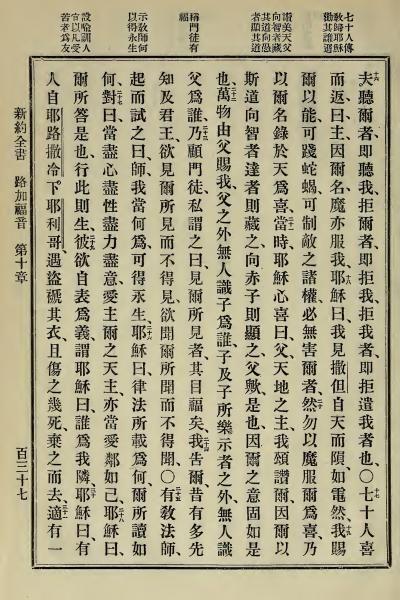 七十人傳
敎歸耶穌
勸其謙遜
讚美天父
向智者藏
其道向愚
者顯其道
稱門徒有
福
示敎師何
以得永生
設喻謂人
宜以凡受
苦者爲友
十六夫聽爾者、卽聽我、拒爾者、卽拒我、拒我者、卽拒遣我者也、○十七七十人喜
而返曰、主、因爾名、魔亦服我、十八耶穌曰、我見撒但自天而隕、如電然、十九我賜
爾以能、可踐蛇蝎、可制敵之諸權、必無害爾者、二十然勿以魔服爾爲喜、乃
以爾名錄於天爲喜、二十一當時、耶穌心喜曰、父、天地之主、我頌讚爾、因爾以
斯道向智者達者則藏之、向赤子則顯之、父歟、是也、因爾之意固如是
也、二十二萬物由父賜我、父之外、無人識子爲誰、子及子所樂示者之外、無人識
父爲誰、二十三乃顧門徒、私謂之曰、見爾所見者、其目福矣、二十四我吿爾、昔有多先
知及君王、欲見爾所見、而不得見、欲聞爾所聞、而不得聞、○二十五有敎法師、
起而試之曰、師、我當何爲、可得永生、二十六耶穌曰、律法所載爲何、爾所讀如
何、二十七對曰、當盡心、盡性、盡力、盡意、愛主爾之天主、亦當愛鄰如己、二十八耶穌曰、
爾所答是也、行此則生、二十九彼欲自表爲義、謂耶穌曰、誰爲我鄰、三十耶穌曰、有
人自耶路撒冷下耶利哥、遇盜、褫其衣、且傷之、幾死、棄之而去、三十一適有一
新約全書 路加福音 第十章 百三十七